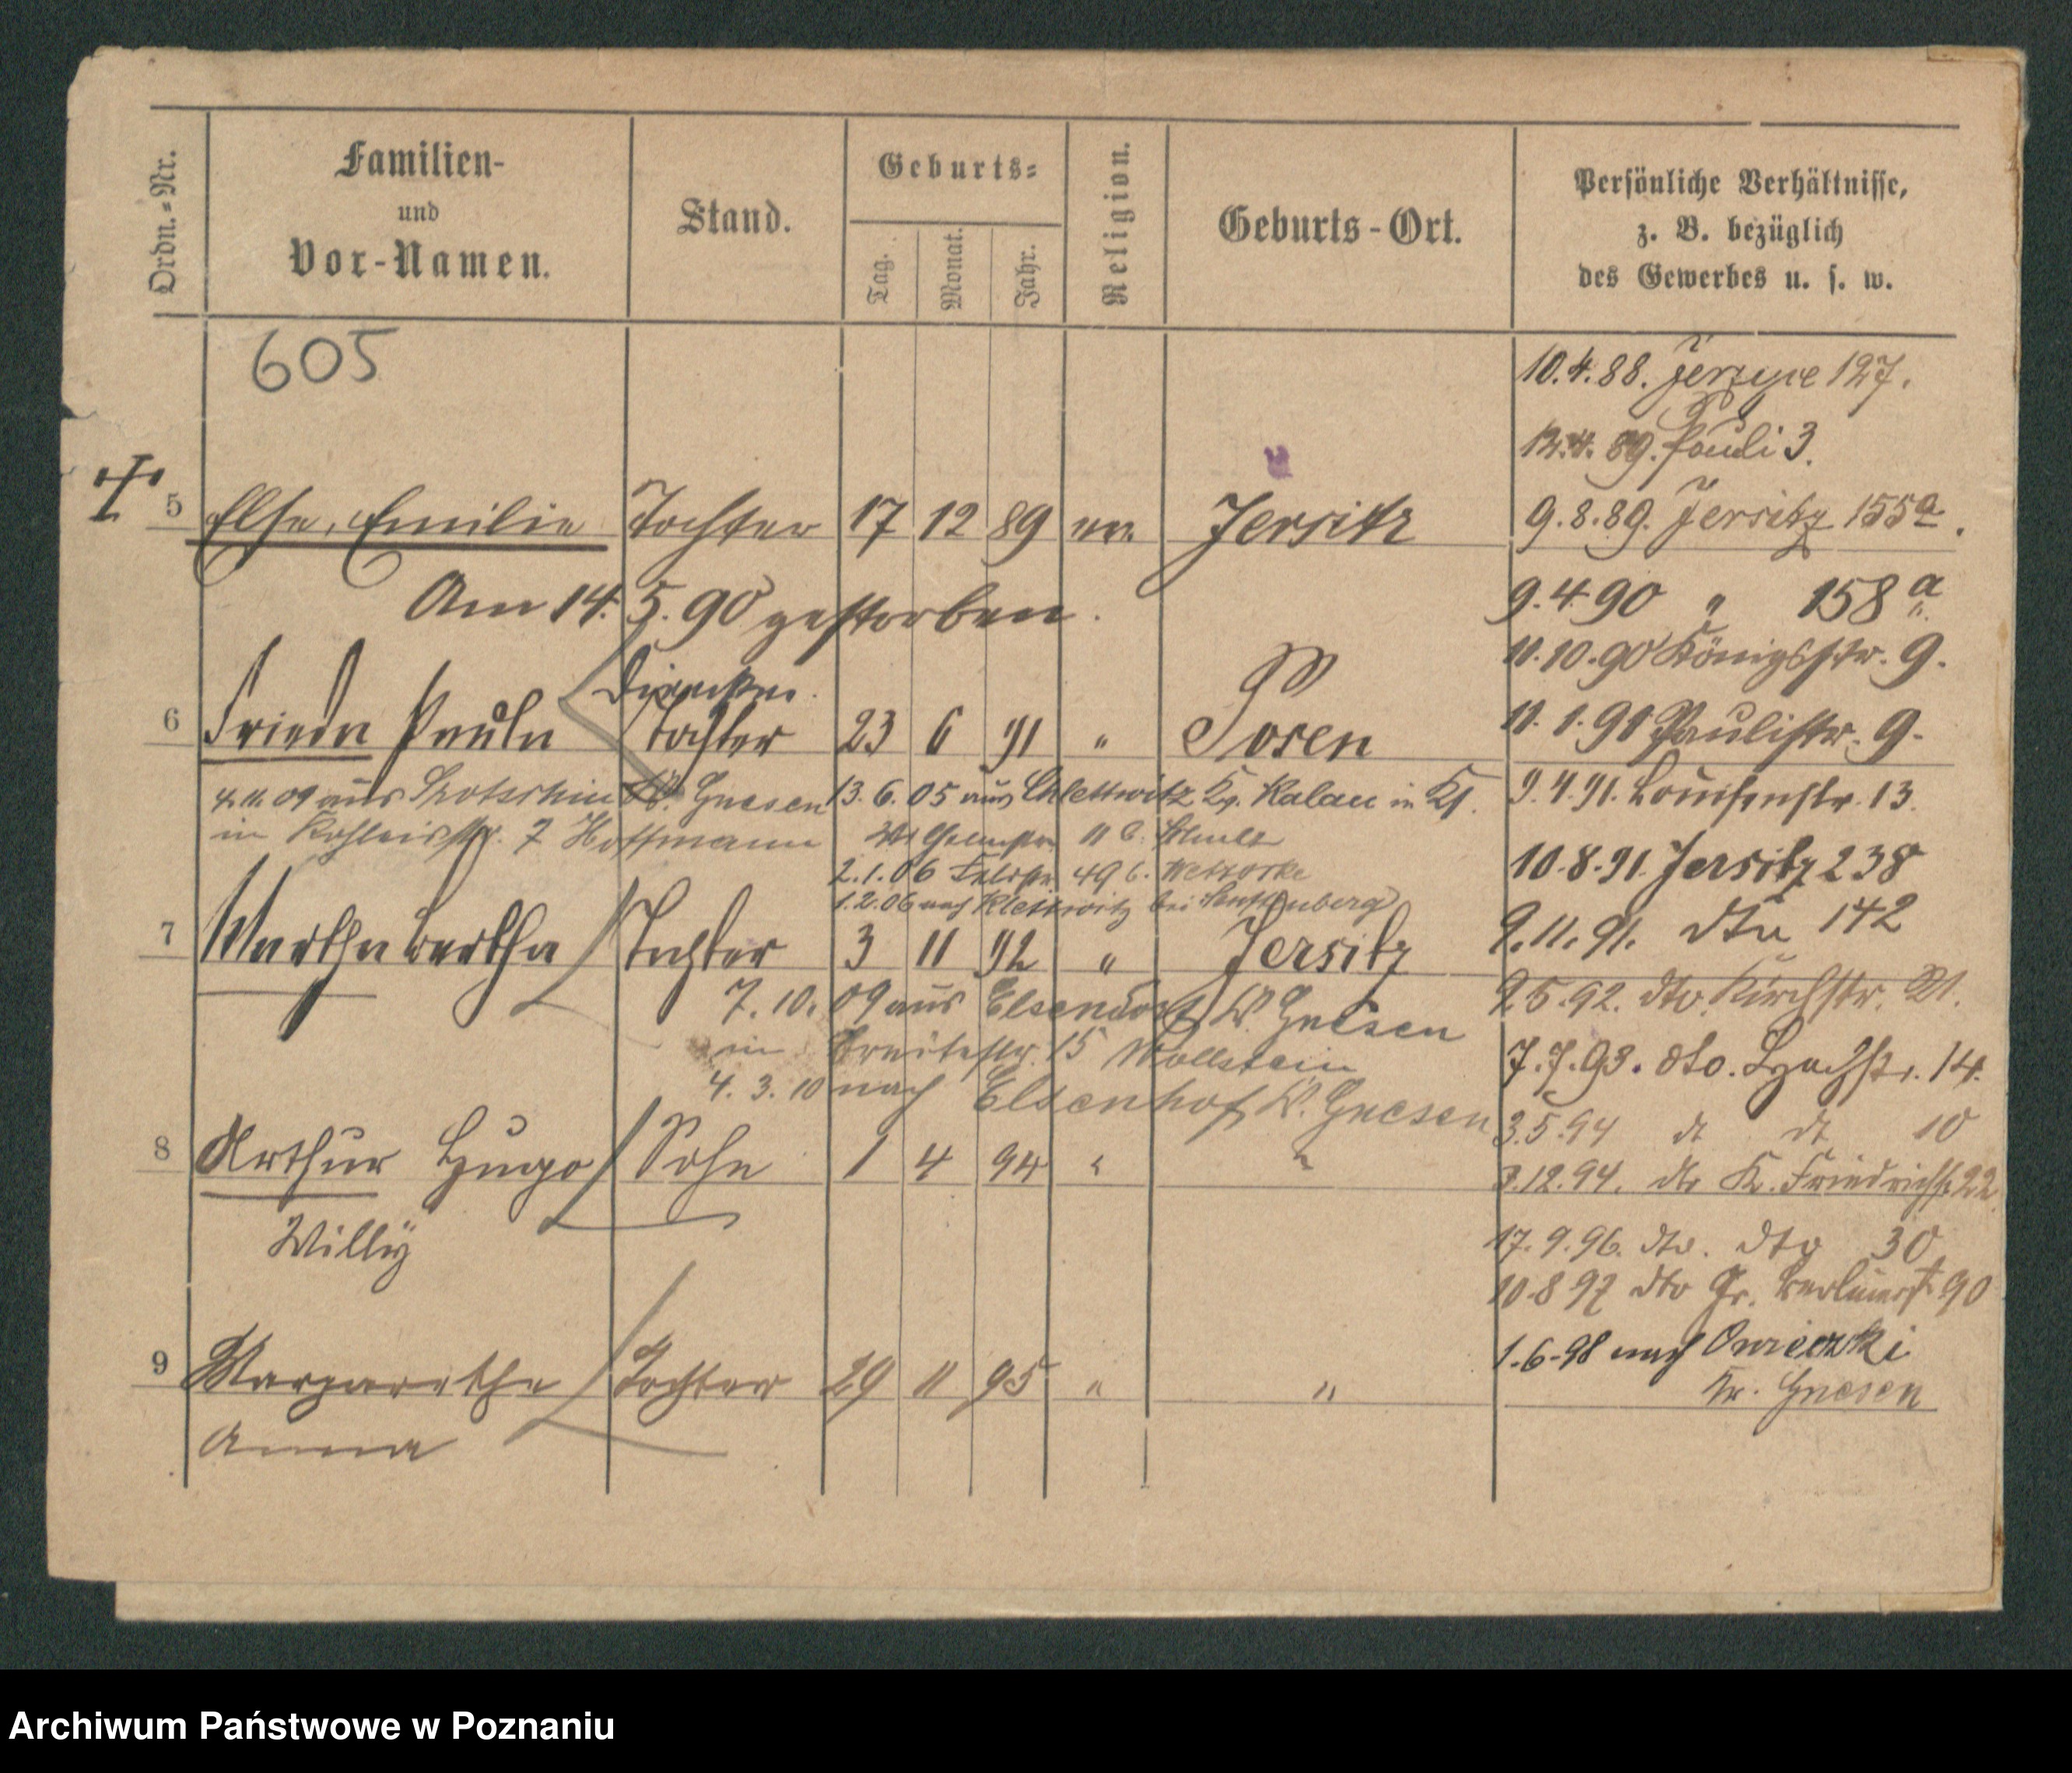 Ordn.-Nr.
Familien-
und
Vor-Namen.
Stand.
Geburts-
Tag.
Monat.
Jahr.
Religion.
Geburts-Ort.
Persönliche Verhältnisse,
z. B. bezüglich
des Gewerbes u. s. w.
605
10.4.88. Jerzyce 127.
12.4. 89. Pauli 3.
5 Else, Emilie Tochter 17 12 89 ev. Jersitz
9.8.89. Jersitz 155a.
Am 14. 5. 90 gestorben.
9.4.90 " 158a
11.10.90 Königsstr. 9.
6 Frieda Paula Tochter 23 6 91 " Posen
11.1.91 Paulistr. 9.
4.11.09 aus K. Gnesen
in 7 Hoffmann
13.6.05 aus Kr. Kalau in
2.1.06 49 b.
1.2.06 nach Klettwitz bei Senftenberg
9.4.91. Louisenstr. 13.
10.8.91. Jersitz 238
9.11.91. dto 142
7 Martha Bertha Tochter 3 11 92 " Jersitz
7.10.09 aus Elsendorf K. Gnesen
in Breitestr. 15 Wollstein
4.3.10 nach Elsenhof K. Gnesen
2.5.92. dto. Kirchstr. 21.
7.7.93. dto. 14.
3.5.94 dt dt 10
8 Arthur Hugo Sohn 1 4 94 " "
Willy
3.12.94. dto K. Friedrichstr 22
17.9.96. dto. dto 30
10.8 97 dto Gr. Berlinerst 90
1.6.98 nach Owieczki
Kr. Gnesen
9 Margarethe Tochter 29 11 95 " "
Anna
Archiwum Państwowe w Poznaniu